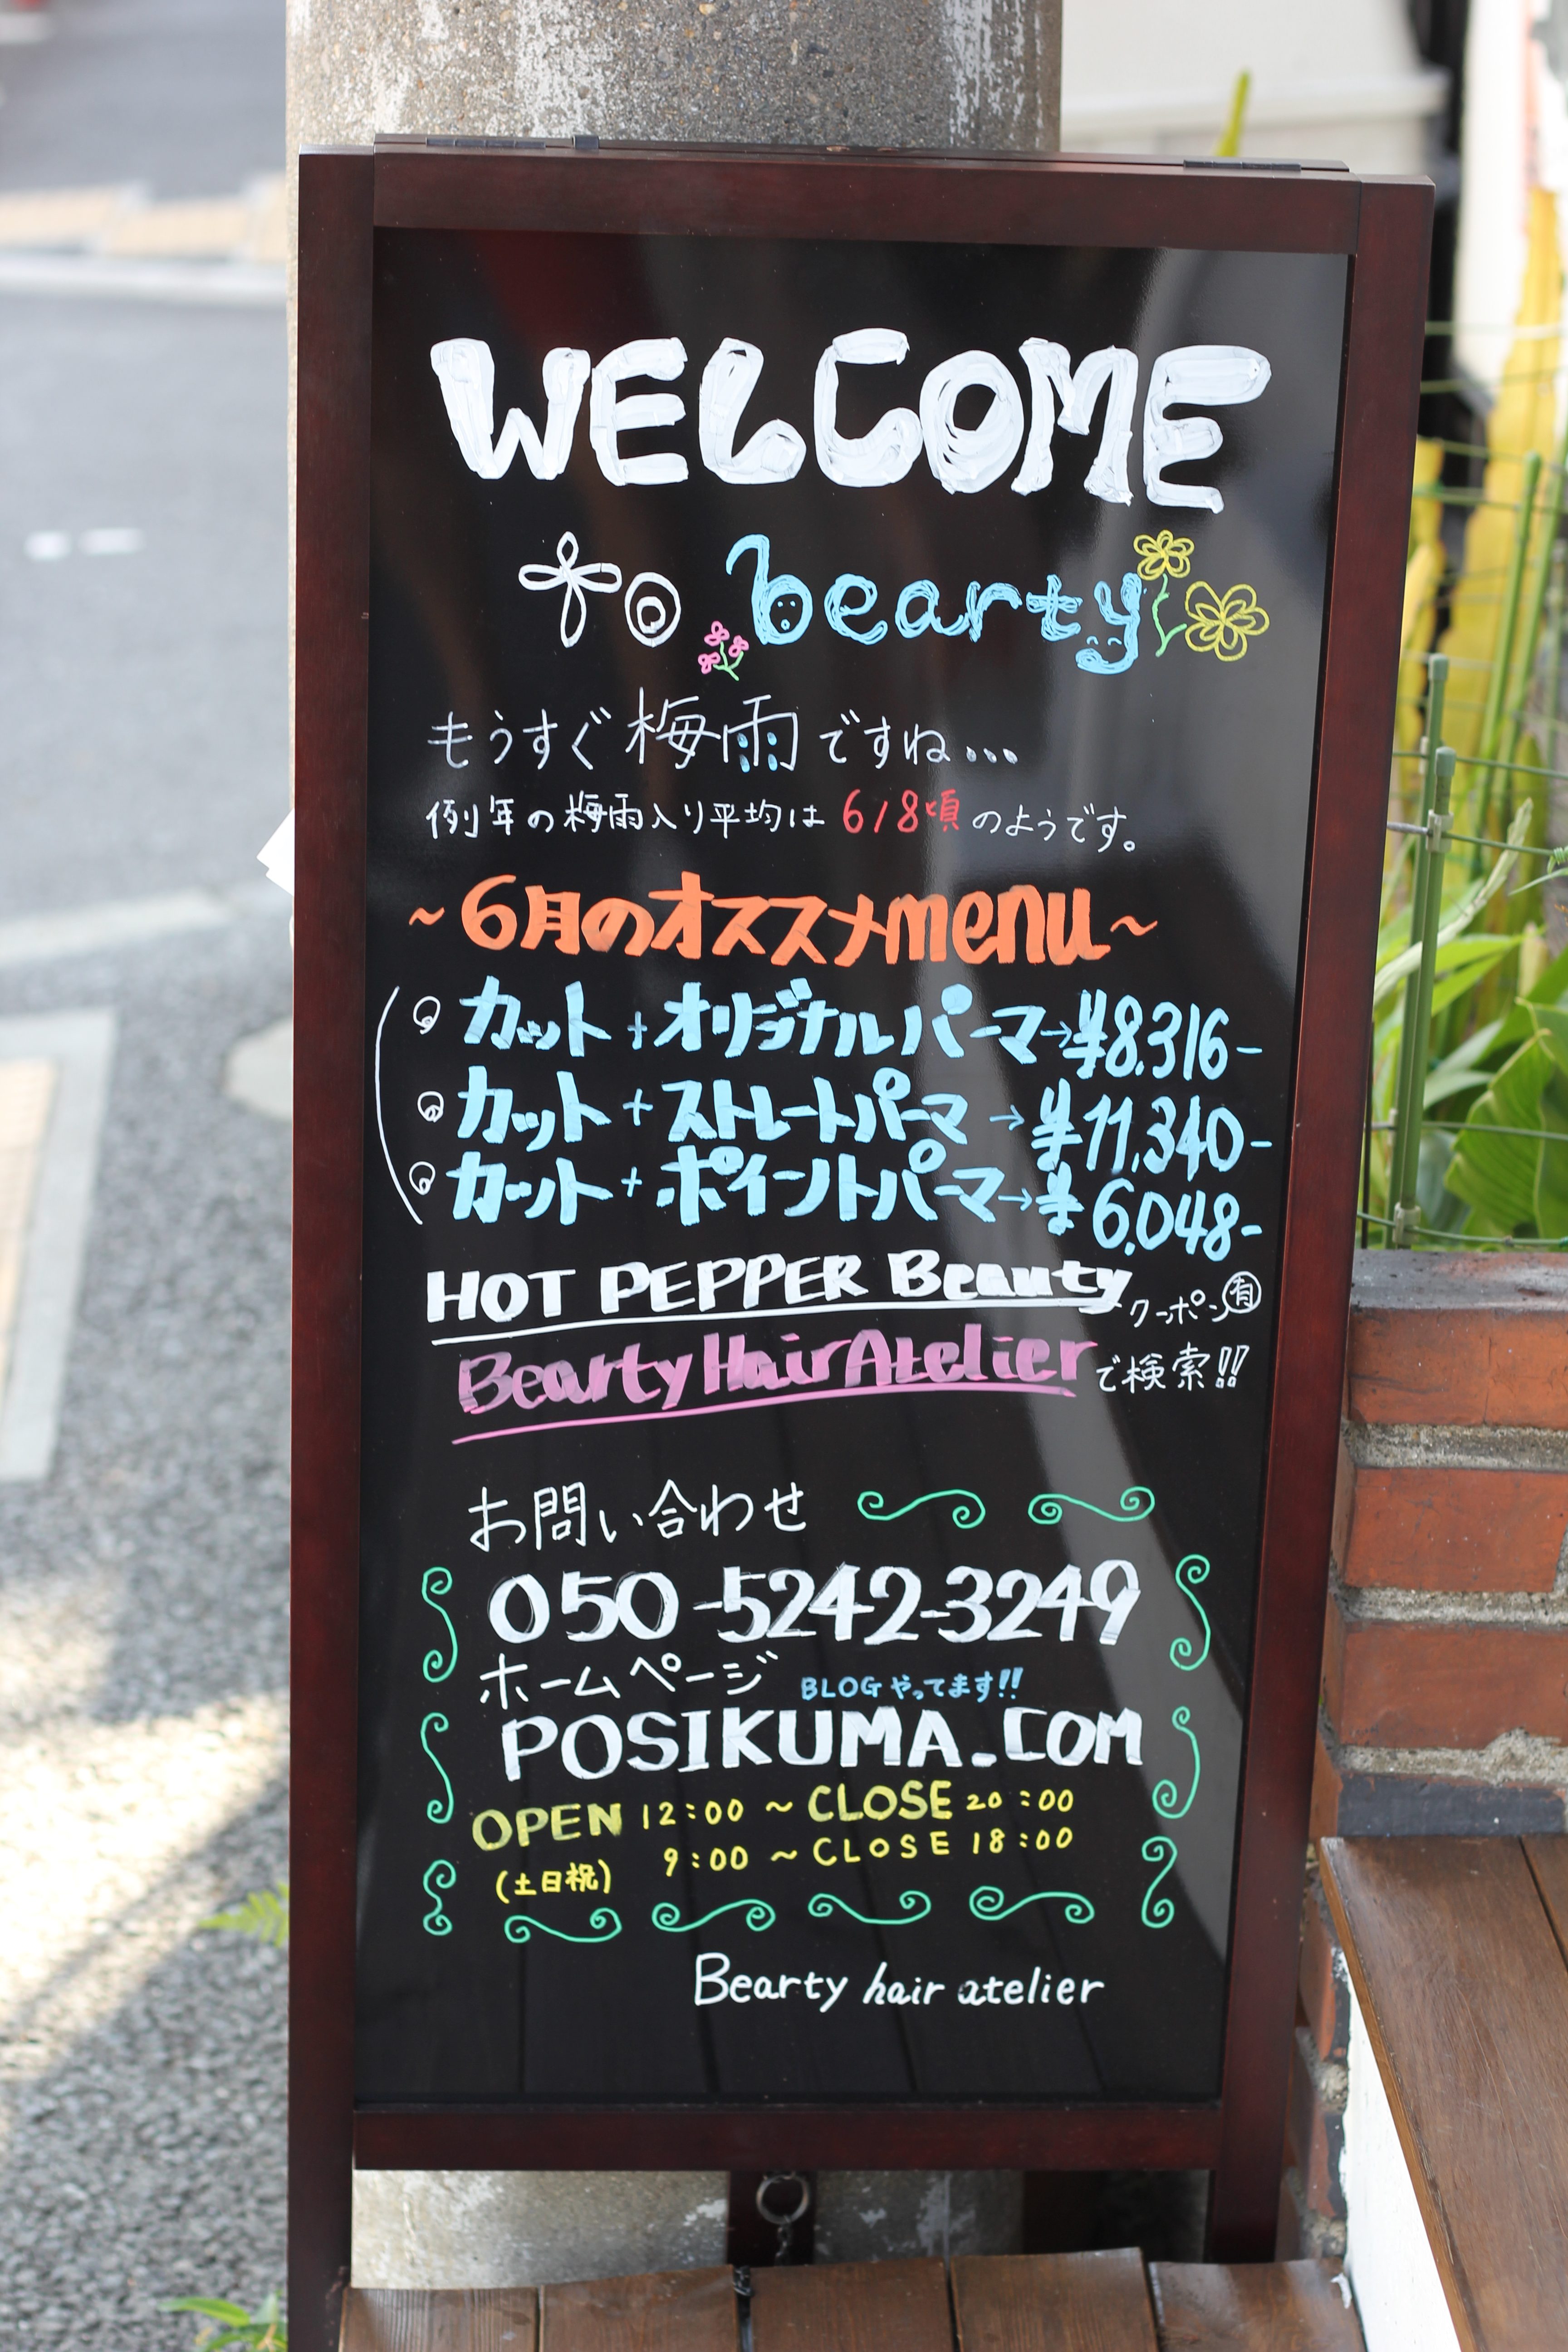 WELCOME
to bearty
もうすぐ梅雨ですね...
例年の梅雨入り平均は 6/8頃 のようです。
~6月のオススメmenu~
カット+オリジナルパーマ→¥8.316-
カット+ストレートパーマ→¥11.340-
カット+ポイントパーマ→¥6.048-
HOT PEPPER Beauty クーポン有
Bearty Hair Atelier で検索!!
お問い合わせ
050-5242-3249
ホームページ BLOGやってます!!
POSIKUMA.COM
OPEN 12:00 ~ CLOSE 20:00
(土日祝) 9:00 ~ CLOSE 18:00
Bearty hair atelier